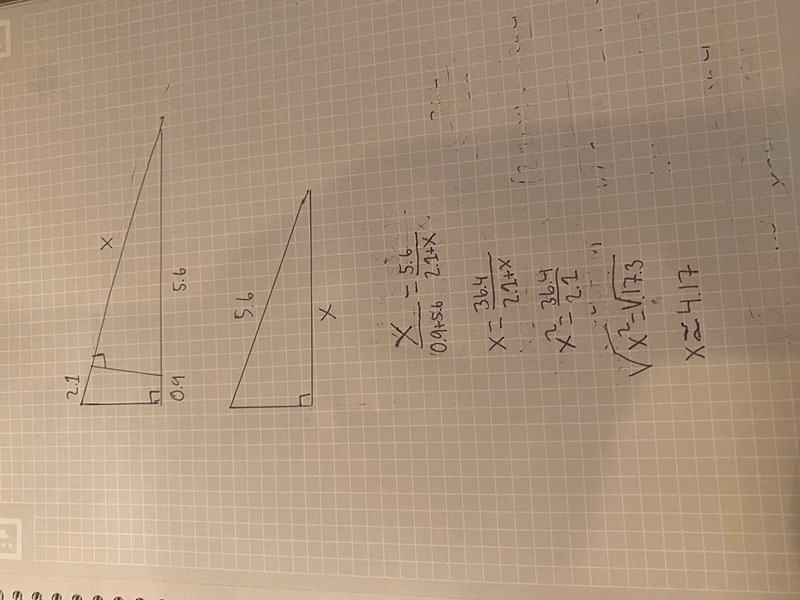 2.1
x
0.9
5.6
5.6
x
x/(0.9+5.6) = 5.6/(2.1+x)
x = 36.4/(2.1+x)
x² = 36.4/2.1
√x² = √17.3
x ≈ 4.17